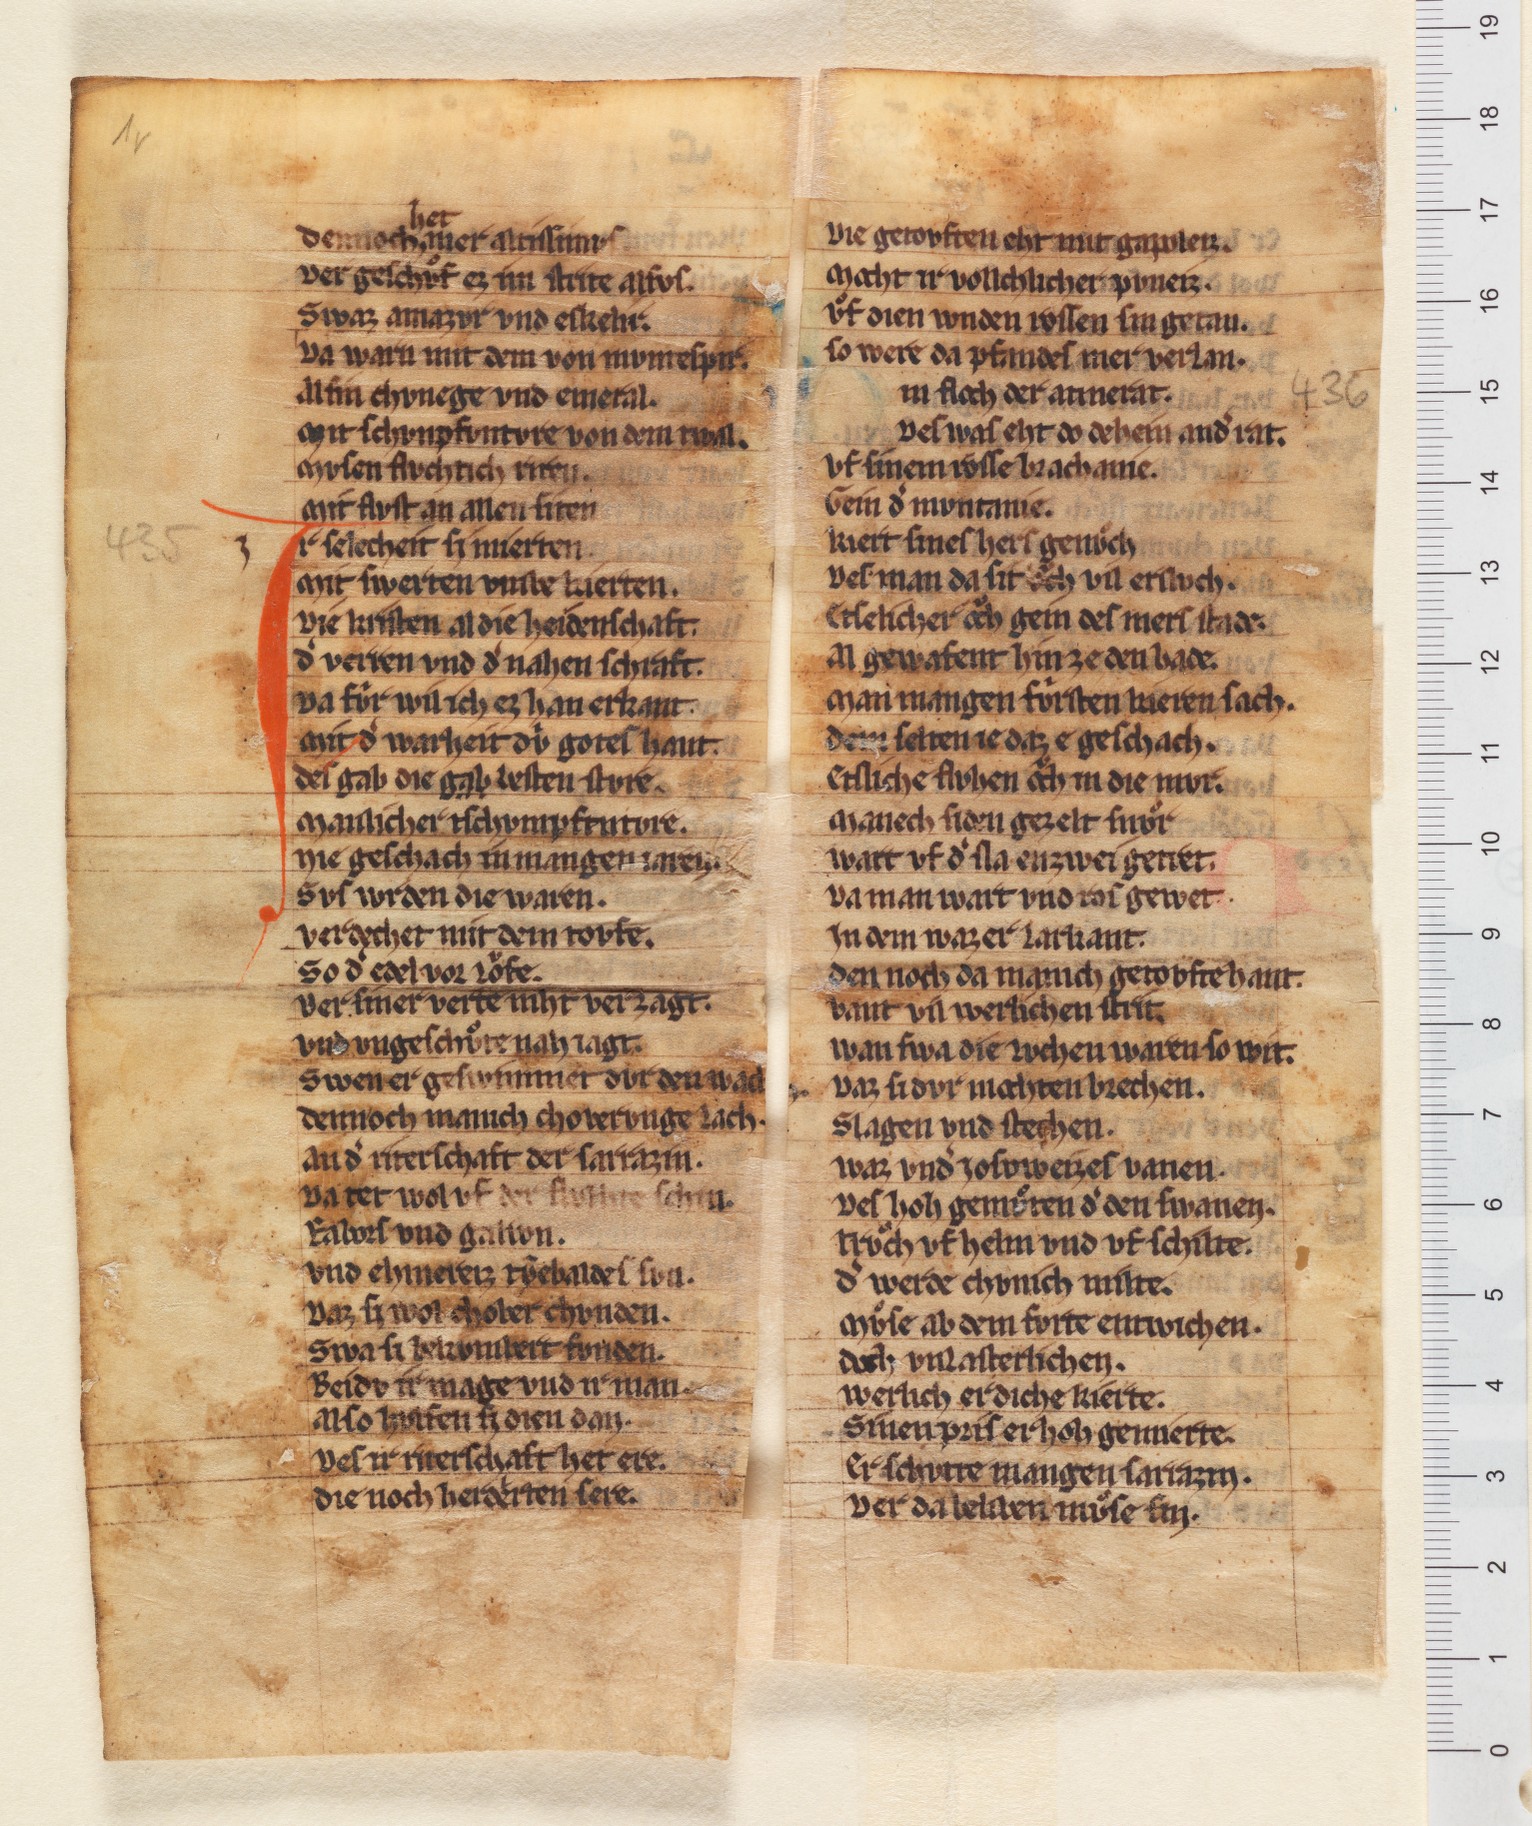 1r
het
dennoch mer altissimus
Der geschuͦf ez im strite alsvs.
Swaz amazvr vnd eskelir.
Da warn mit dem von mvntespir.
Alsin chvnege vnd emeral.
Mit schvnpfvntvre von dem twal.
Mvsen flvchtich riten.
Mit flvst an allen siten
435
Ir selecheit si mierten.
Mit swerten vnste kierten.
Die kristen al die heidenschaft.
dˀ verren vnd dˀ nahen schraft.
Da fuͦr wil ich ez han erkant.
Mit dˀ warheit dv̂ gotes hant.
des gab die gab besten stvre.
Manlicher tschvmpfentvre.
Nie geschach in mangen iaren.
Svs wrden die waren.
verdechet mit dem tovfe.
So dˀ edel vor loͮfe.
Der siner verte niht verzagt.
vnd vngeschuͦre nah iagt.
Swen er geswimmet dvr den wach
dennoch manich chovervnge lach.
An dˀ riterschaft der sarrazin.
Da tet wol vf der slvchte schin.
Fabors vnd galion.
vnd ehmereiz tŷebaldes svn.
Daz si wol chober chvnden.
Swa si bekvmbert fvnden.
Beidv ir mage vnd ir man.
also hvlfen si dien dan.
Des ir riterschaft het ere.
die noch herderten sere.
Die getovften eht mit gapoleiz.
Moht ir vollichlicher pvneiz.
vͦf dien wnden rossen sin getan.
so were da pfandes mer verlan.
436
in floch der atmerat.
Des was eht do dehein andˀ rat.
vf sinem rosse brachanie.
Gein dˀ mvntanie.
kiert sines hers genvͦch
Des man da sit oͮch vil erslvch.
Etselicher oͮch gein des mers stade.
Al gewafent hin ze den bade.
Man mangen fuͦrsten kieren sach.
dem selten ie daz e geschach.
Etsliche flvhen oͮch in die mvr.
Manech siden gezelt snvͦr
wart vf dˀ sla enzwei getret.
Da man wart vnd ros gewet.
In dem wazer larkant.
den noch da manich getovfte hant.
vant vil werlichen strit.
wan swa die lvchen waren so wit.
Daz si dvr mochten brechen.
Slagen vnd stechen.
waz vndˀ iosvweizes vanen.
Des hoh gemvͦten dˀ den swanen.
trvͦch vf helm vnd vf schilte.
dˀ werde chvnich milte.
Mvͦse ab dem fvrte entwichen.
doch vnlasterlichen.
werlich er diche kierte.
Sinen pris er hoh gemierte.
Er schvtte mangen sarrazin.
Der da beliben mvͦse sin.